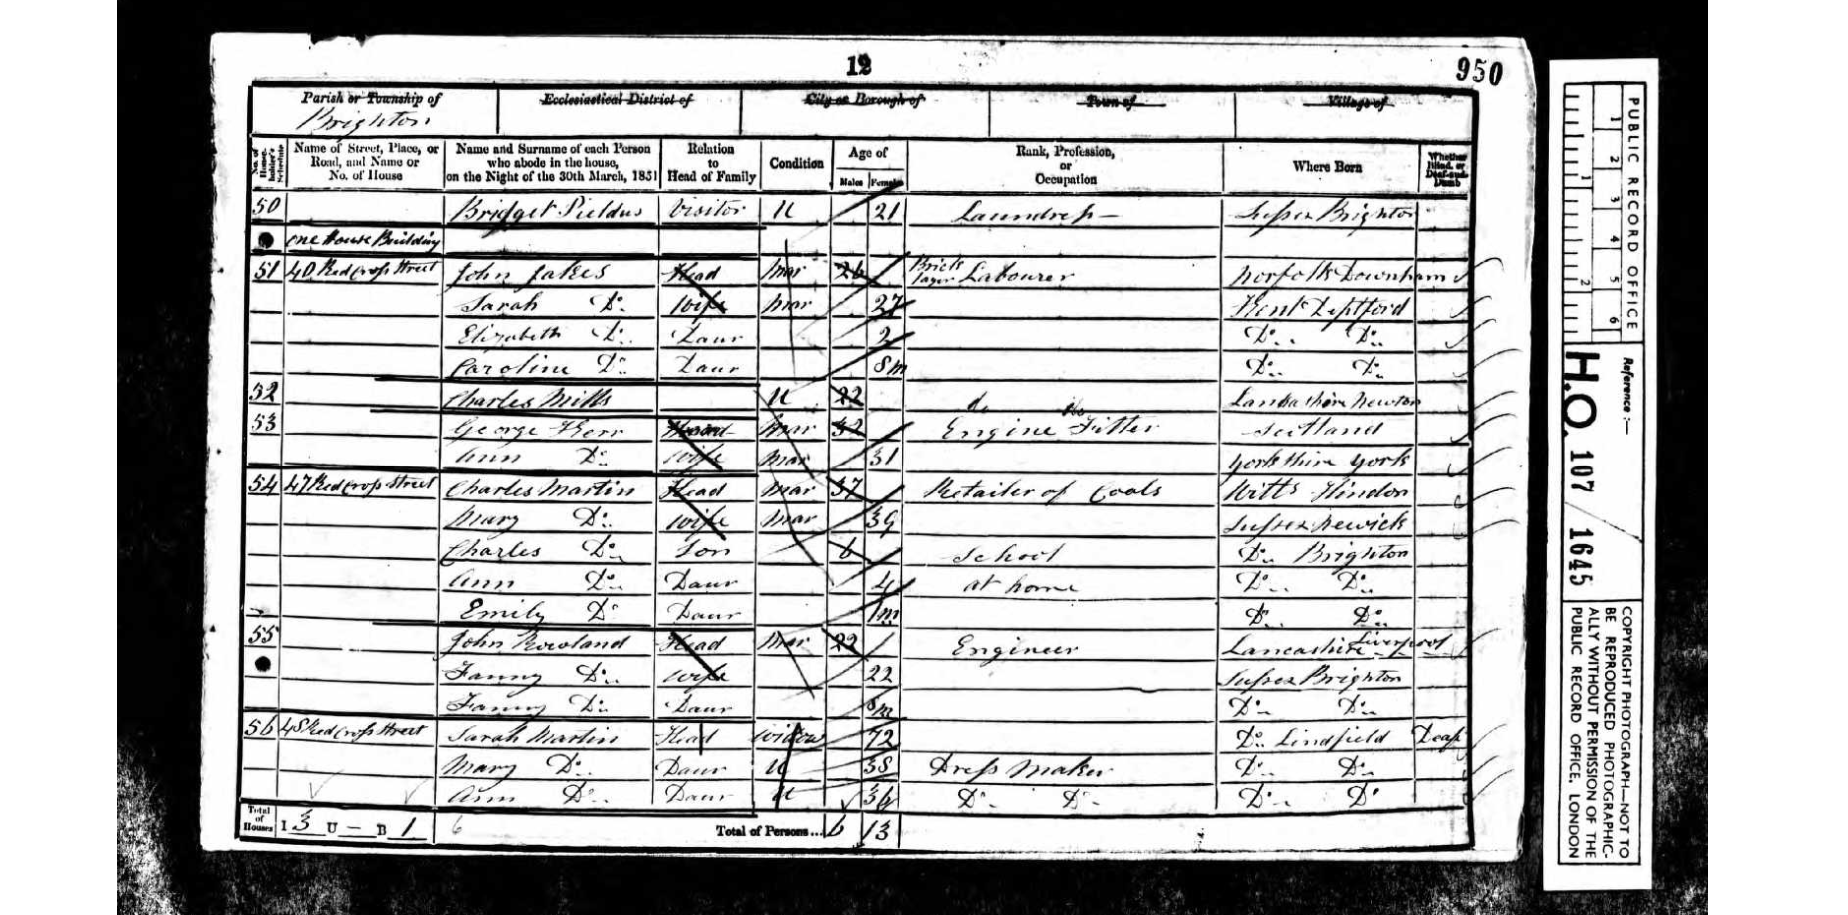 12
950
Parish or Township of
Brighton
Ecclesiastical District of
City or Borough of
Town of
Village of
No. of House-holder's Schedule
Name of Street, Place, or Road, and Name or No. of House
Name and Surname of each Person who abode in the house, on the Night of the 30th March, 1851
Relation to Head of Family
Condition
Age of
Males Females
Rank, Profession, or Occupation
Where Born
Whether Blind, or Deaf-and-Dumb
50 Bridget Visitor U 21 Laundress Sussex Brighton
one House Building
51 40 Red Cross Street John Jakes Head Mar 26 Brick layer Labourer Norfolk Downham
Sarah Do. Wife Mar 27 Kent Deptford
Elizabeth Do. Daur 2 Do. Do.
Caroline Do. Daur 8m Do. Do.
52 Charles Mills U 22 Do Do Lancashire Newton
53 George Kerr Head Mar 32 Engine Fitter Scotland
Ann Do. Wife Mar 31 Yorkshire York
54 47 Red Cross Street Charles Martin Head Mar 37 Retailer of Coals Wilts Hindon
Mary Do. Wife Mar 39 Sussex Newick
Charles Do. Son 6 School Do. Brighton
Ann Do. Daur 4 at home Do. Do.
Emily Do. Daur 1m Do. Do.
55 John Rowland Head Mar 22 Engineer Lancashire Liverpool
Fanny Do. Wife 22 Sussex Brighton
Fanny Do. Daur 8m Do. Do.
56 48 Red Cross Street Sarah Martin Head Widow 72 Do. Lindfield Deaf
Mary Do. Daur U 38 Dress Maker Do. Do.
Ann Do. Daur U 36 Do. Do. Do. Do.
Total of Houses I 3 U — B 1 6 Total of Persons... 6 13
PUBLIC RECORD OFFICE
1 2 3 4 5 6
1 2
Reference :—
H.O. 107 / 1645
COPYRIGHT PHOTOGRAPH—NOT TO
BE REPRODUCED PHOTOGRAPHIC-
ALLY WITHOUT PERMISSION OF THE
PUBLIC RECORD OFFICE, LONDON